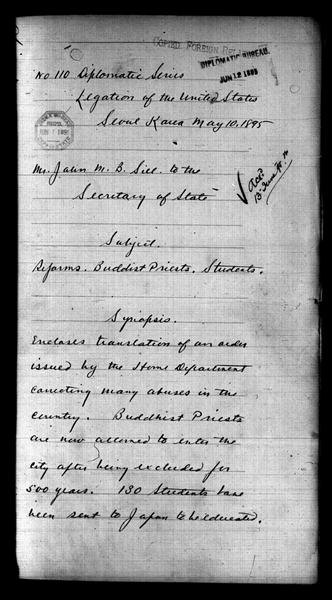 COPIED FOREIGN REL
DIPLOMATIC BUREAU.
JUN 12 1895
No 110 Diplomatic Series
Legation of the United States
Seoul Korea May 10, 1895
Mr. John M. B. Sill to the
Secretary of State
Subject.
Reforms. Buddhist Priests. Students.
Synopsis.
Encloses translation of an order
issued by the Home Department
correcting many abuses in the
country. Buddhist Priests
are now allowed to enter the
city after being excluded for
500 years. 130 Students have
been sent to Japan to be educated.